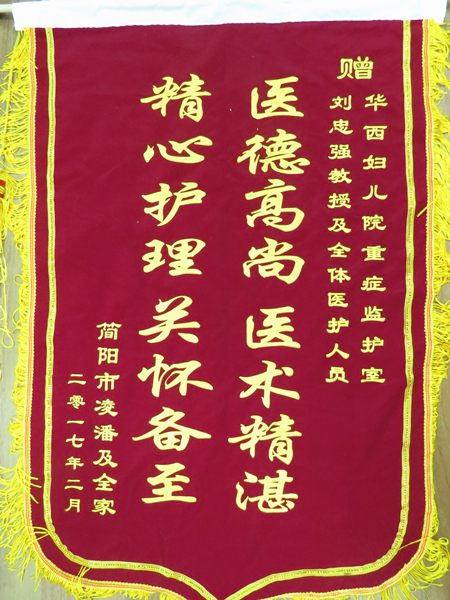 赠
华西妇儿院重症监护室
刘忠强教授及全体医护人员
医德高尚 医术精湛
精心护理 关怀备至
简阳市凌潘及全家
二零一七年二月